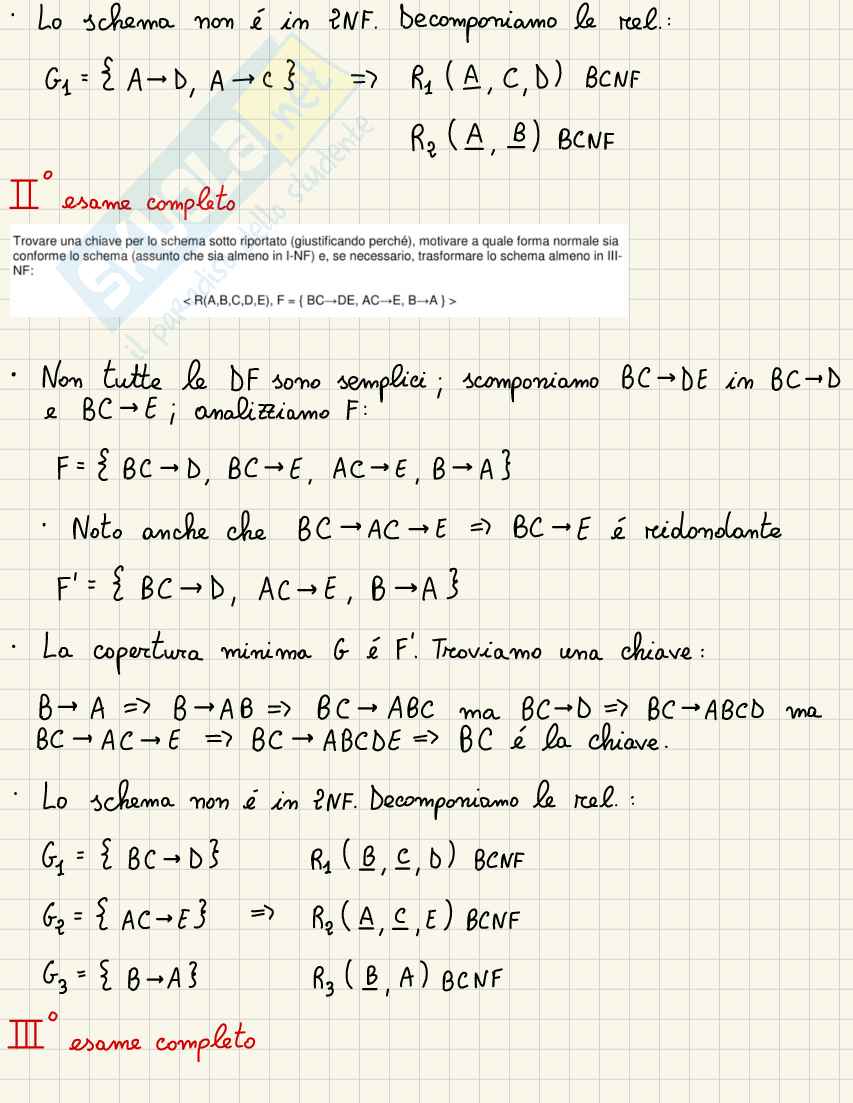 · Lo schema non é in 2NF. Decomponiamo le rel.:
G₁ = { A→D, A→C } => R₁ (A, C, D) BCNF
R₂ (A, B) BCNF
II° esame completo
Trovare una chiave per lo schema sotto riportato (giustificando perché), motivare a quale forma normale sia
conforme lo schema (assunto che sia almeno in I-NF) e, se necessario, trasformare lo schema almeno in III-
NF:
< R(A,B,C,D,E), F = { BC→DE, AC→E, B→A } >
SKUOLA.net
il paradiso dello studente
· Non tutte le DF sono semplici; scomponiamo BC→DE in BC→D
e BC→E; analizziamo F:
F = { BC→D, BC→E, AC→E, B→A }
· Noto anche che BC→AC→E => BC→E é ridondante
F' = { BC→D, AC→E, B→A }
· La copertura minima G é F'. Troviamo una chiave:
B→A => B→AB => BC→ABC ma BC→D => BC→ABCD ma
BC→AC→E => BC→ABCDE => BC é la chiave.
· Lo schema non é in 2NF. Decomponiamo le rel.:
G₁ = { BC→D } R₁ (B, C, D) BCNF
G₂ = { AC→E } => R₂ (A, C, E) BCNF
G₃ = { B→A } R₃ (B, A) BCNF
III° esame completo